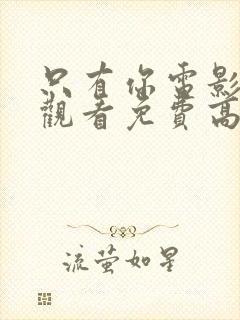 只有你電影
觀看免費高
流螢如星